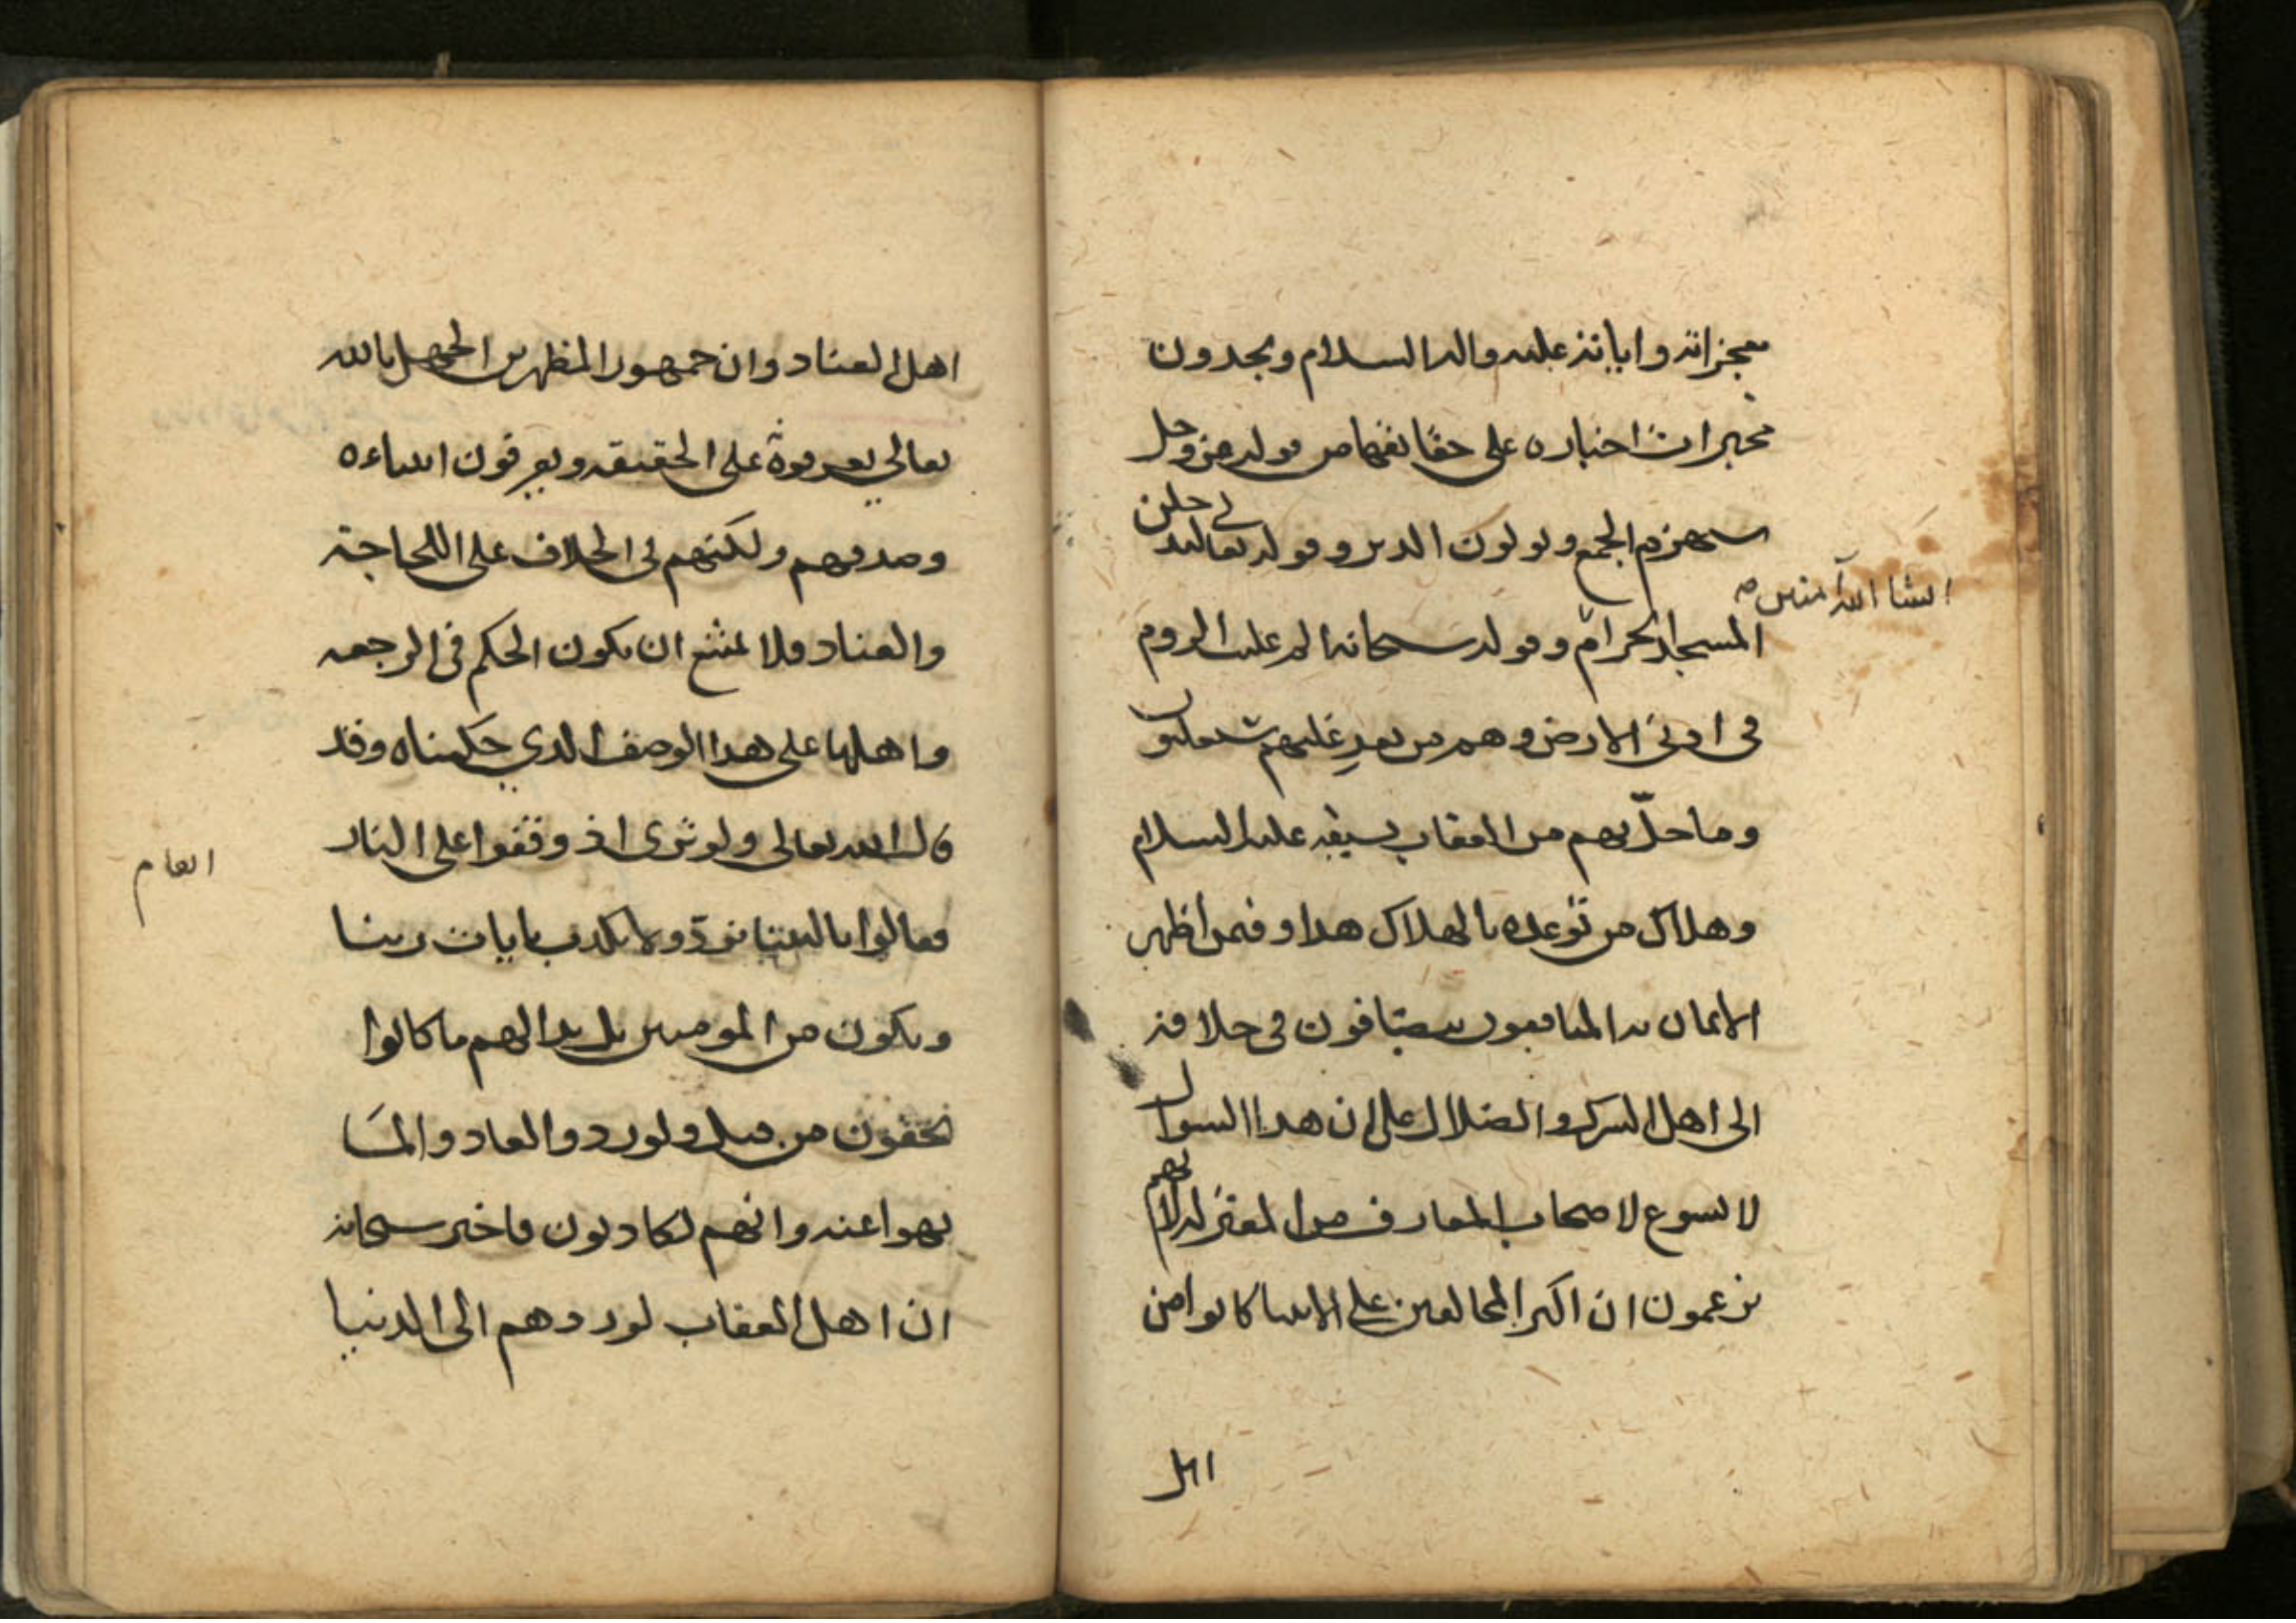 معجزاته واياته عليه واله السلام ويجدون
مخبرات اخباره على حقايقها من قوله عز وجل
سيهزم الجمع ويولون الدبر وقوله تعالى لتدخلن
المسجد الحرام انشا الله امنين وقوله سبحانه الم غلبت الروم
فى ادنى الارض وهم من بعد غلبهم سيغلبون
وما حلّ بهم من العقاب بسيفه عليه السلام
وهلاك من توعده بالهلاك هذا وفيمن اظهر
الايمان به المنافقون ينضافون فى خلافه
الى اهل الشرك والضلال على ان هذا السوال
لا يسوغ لاصحاب المعارف من المعتزلة لانهم
يزعمون ان اكثر المخالفين على الانبيا كانوا من
اهل
اهل العناد وان جمهور المظهرين الجهل بالله
تعالى يعرفونه على الحقيقه ويعرفون انبياءه
وصدقهم ولكنهم فى الخلاف على اللجاجة
والعناد فلا يمتنع ان يكون الحكم فى الرجعه
واهلها على هذا الوصف الذي حكيناه وقد
قال الله تعالى ولو ترى اذ وقفوا على النار
انعام
فقالوا يا ليتنا نرد ولا نكذب بايات ربنا
ونكون من المومنين بل بدا لهم ما كانوا
يخفون من قبل ولو ردوا لعادوا لما
نهوا عنه وانهم لكاذبون فاخبر سبحانه
ان اهل العقاب لو ردهم الى الدنيا